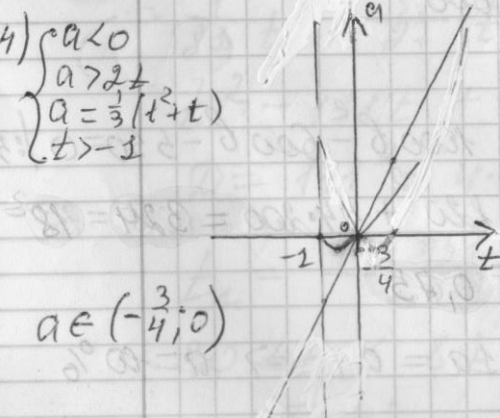 4) { a < 0
a > 2t
a = 1/3 (t² + t)
t > -1
a
0
-1
-3/4
t
a ∈ (-3/4; 0)